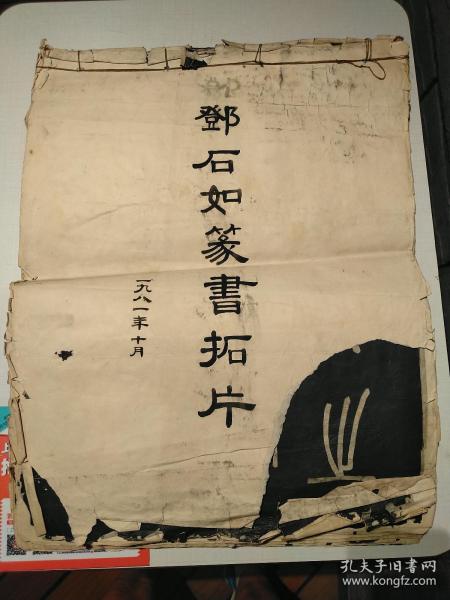 鄧石如篆書拓片
一九八一年十月
孔夫子旧书网
www.kongfz.com